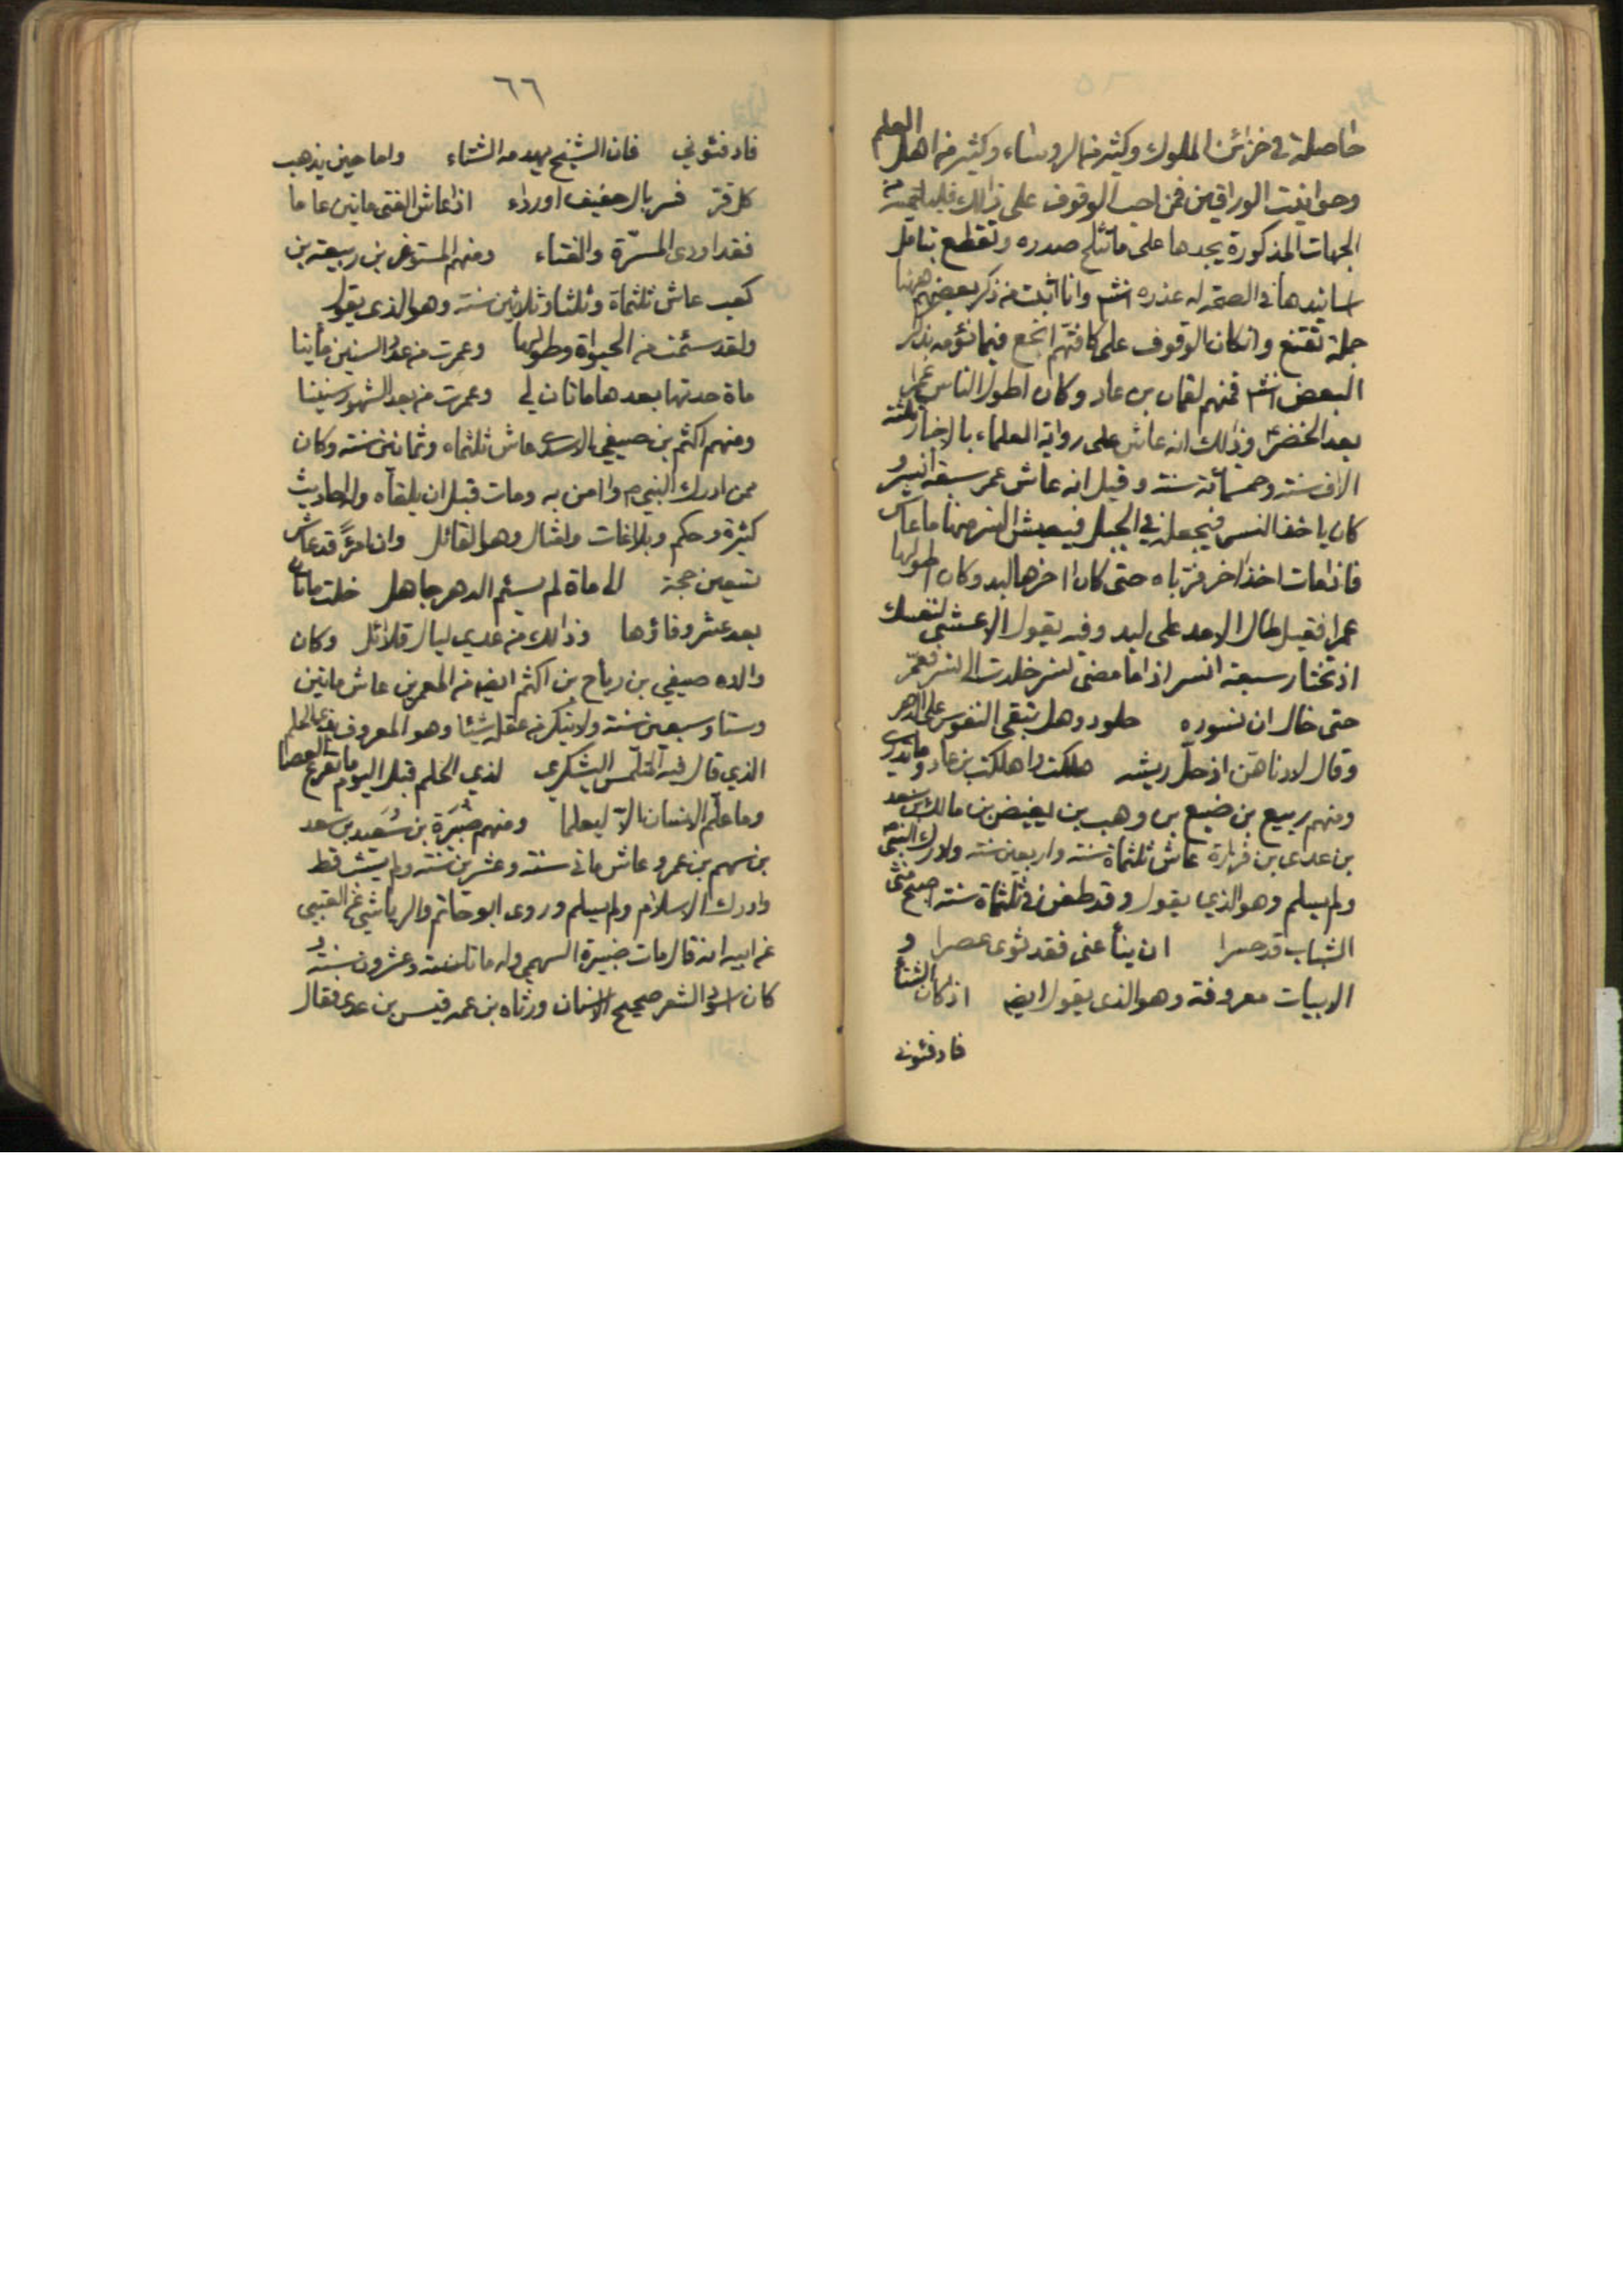 حاصلة في خزائن الملوك وكثير من الروساء وكثير من اهل العلم
وحوانيت الوراقين فمن احب الوقوف على ذالك فليلتمسه من
الجهات المذكورة يجدها على ما يثلج صدره وتقطع بتامل
اسانيدها في الصحة له عذره انشم وانا اثبت من ذكر بعضهم ههنا
جملة تقنع وانكان الوقوف على كافتهم انجع فيما نؤمه بذكر
البعض انشم فمنهم لقمان بن عاد وكان اطول الناس عمرا
بعد الخضر وذلك انه عاش على رواية العلماء بالاخبار ثلثة
الاف سنة وخمسمائة سنة وقيل انه عاش عمر سبعة انسر و
كان ياخذ النسر فيجعله في الجبل فيعيش النسر منها ما عاش
فاذا مات اخذ اخر فرباه حتى كان اخرها لبد وكان اطولها
عمرا فقيل طال الامد على لبد وفيه يقول الاعشى لنفسك
اذ تختار سبعة انسر اذا ما مضى نسر خلدت الى نسر فعمّر
حتى خال ان نسوره خلود وهل تبقى النفوس على الدهر
وقال لادناهن اذ حل ريشه هلكت واهلكت بن عاد وما تدري
ومنهم ربيع بن ضبع بن وهب بن بغيض بن مالك بن سعد
بن عدى بن فزارة عاش ثلثماة سنة واربعين سنة وادرك النبي
ولم يسلم وهو الذي يقول وقد طعن في ثلثماة سنة اصبح منى
الشباب قد حسرا ان ينأ عنى فقد ثوى عصرا و
الابيات معروفة وهو الذى يقول ايضه اذ كان الشتاء
فادفئوني
٦٦
فادفئوني فان الشيخ يهدمه الشتاء واما حين يذهب
كل قر فسربال خفيف اورداء اذ عاش الفتى ماتين عاما
فقد اودى المسرّة والفتاء ومنهم المستوغر بن ربيعة بن
كعب عاش ثلثماة وثلثا وثلاثين سنة وهو الذى يقول
ولقد سئمت من الحيواة وطولها وعمرت من عدد السنين مأينا
ماة حدتها بعدها ماتان لي وعمرت من بعد الشهور سنينا
ومنهم اكثم بن صيفي الاسدى عاش ثلثماه وثمانين سنة وكان
ممن ادرك النبي ص وامن به ومات قبل ان يلقاه وله احاديث
كثيرة وحكم وبلاغات وامثال وهو القائل وان امرًء قد عاش
تسعين حجة الى ماة لم يسئم الدهر جاهل خلت ماتان
بعد عشر وفاؤها وذالك من عدي ليال قلائل وكان
والده صيفي بن رياح بن اكثم ايضه من المعمرين عاش ماتين
وستا وسبعين سنة ولا ينكر من عقله شيئا وهو المعروف بذي الحلم
الذي قال فيه المتلمس اليشكرى لذي الحلم قبل اليوم ما تقرع العصا
وما علّم الانسان الاّ ليعلما ومنهم ضبيرة بن سُعَيد بن سعد
بن سهم بن عمرو عاش ماتي سنة وعشرين سنة ولم يشب قط
وادرك الاسلام ولم يسلم وروى ابو حاتم والرياشي عن العتبي
عن ابيه انه قال مات ضبيرة السهمي وله ماتا سنة وعشرون سنة و
كان اسود الشعر صحيح الاسنان ورثاه بن عمه قيس بن عدى فقال